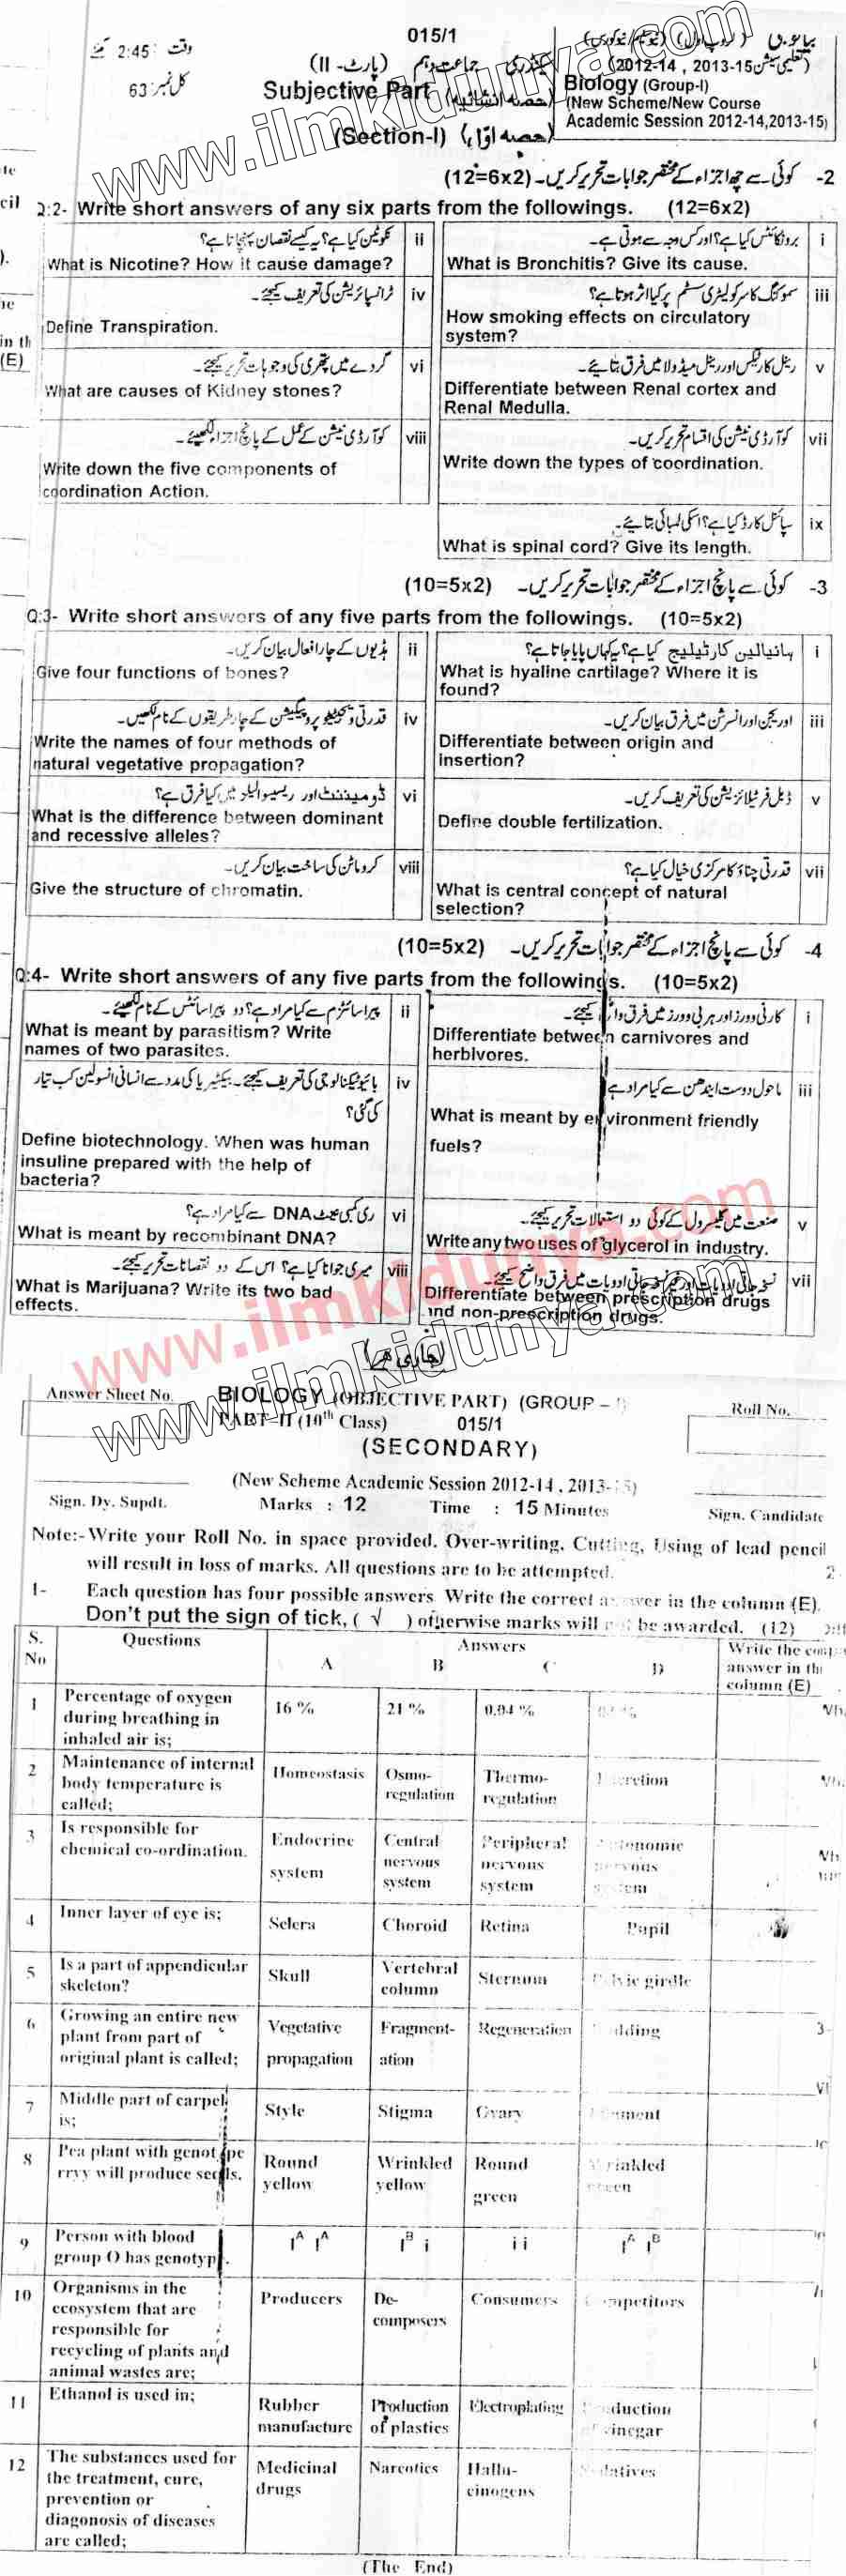 015/1
وقت 2:45 گھنٹے
(2012-14 , 2013-15 تعلیمی سیشن)
سیکنڈری جماعت دہم (پارٹ - II)
کل نمبر: 63
Subjective Part (حصہ انشائیہ)
Biology (Group-I)
(New Scheme/New Course
Academic Session 2012-14,2013-15)
(Section-I) (حصہ اوّل)
www.ilmkidunya.com
2- کوئی سے چھ اجزاء کے مختصر جوابات تحریر کریں۔ (12=6x2)
Q:2- Write short answers of any six parts from the followings. (12=6x2)
i برونکائٹس کیا ہے؟ اور کس وجہ سے ہوتی ہے۔
What is Bronchitis? Give its cause.
ii نکوٹین کیا ہے؟ یہ کیسے نقصان پہنچاتا ہے؟
What is Nicotine? How it cause damage?
iii سموکنگ کا سرکولیٹری سسٹم پر کیا اثر ہوتا ہے؟
How smoking effects on circulatory
system?
iv ٹرانسپائریشن کی تعریف کیجئے۔
Define Transpiration.
v رینل کارٹیکس اور رینل میڈولا میں فرق بتائیے۔
Differentiate between Renal cortex and
Renal Medulla.
vi گردے میں پتھری کی وجوہات تحریر کیجئے۔
What are causes of Kidney stones?
vii کوآرڈی نیشن کی اقسام تحریر کریں۔
Write down the types of coordination.
viii کوآرڈی نیشن کے عمل کے پانچ اجزاء لکھیئے۔
Write down the five components of
coordination Action.
ix سپائنل کارڈ کیا ہے؟ اسکی لمبائی بتائیے۔
What is spinal cord? Give its length.
3- کوئی سے پانچ اجزاء کے مختصر جوابات تحریر کریں۔ (10=5x2)
Q:3- Write short answers of any five parts from the followings. (10=5x2)
i ہائیالین کارٹیلیج کیا ہے؟ یہ کہاں پایا جاتا ہے؟
What is hyaline cartilage? Where it is
found?
ii ہڈیوں کے چار افعال بیان کریں۔
Give four functions of bones?
iii اوریجن اور انسرشن میں فرق بیان کریں۔
Differentiate between origin and
insertion?
iv قدرتی ویجیٹیٹو پروپیگیشن کے چار طریقوں کے نام لکھیں۔
Write the names of four methods of
natural vegetative propagation?
v ڈبل فرٹیلائزیشن کی تعریف کریں۔
Define double fertilization.
vi ڈومیننٹ اور ریسیسو الیلز میں کیا فرق ہے؟
What is the difference between dominant
and recessive alleles?
vii قدرتی چناؤ کا مرکزی خیال کیا ہے؟
What is central concept of natural
selection?
viii کروماٹن کی ساخت بیان کریں۔
Give the structure of chromatin.
4- کوئی سے پانچ اجزاء کے مختصر جوابات تحریر کریں۔ (10=5x2)
Q:4- Write short answers of any five parts from the followings. (10=5x2)
i کارنی وورز اور ہربی وورز میں فرق واضح کیجئے۔
Differentiate between carnivores and
herbivores.
ii پیراسائٹزم سے کیا مراد ہے؟ دو پیراسائٹس کے نام لکھیئے۔
What is meant by parasitism? Write
names of two parasites.
iii ماحول دوست ایندھن سے کیا مراد ہے
What is meant by environment friendly
fuels?
iv بائیوٹیکنالوجی کی تعریف کیجئے۔ بیکٹیریا کی مدد سے انسانی انسولین کب تیار
کی گئی؟
Define biotechnology. When was human
insuline prepared with the help of
bacteria?
v صنعت میں گلیسرول کے کوئی دو استعمالات تحریر کیجئے۔
Write any two uses of glycerol in industry.
vi ری کمبی نینٹ DNA سے کیا مراد ہے؟
What is meant by recombinant DNA?
vii نسخہ جاتی ادویات اور غیر نسخہ جاتی ادویات میں فرق واضح کیجئے۔
Differentiate between prescription drugs
and non-prescription drugs.
viii میری جوانا کیا ہے؟ اس کے دو نقصانات تحریر کیجئے۔
What is Marijuana? Write its two bad
effects.
www.ilmkidunya.com
(جاری ہے)
www.ilmkidunya.com
Answer Sheet No.
BIOLOGY (OBJECTIVE PART) (GROUP – I)
Roll No.
PART-II (10th Class) 015/1
(SECONDARY)
(New Scheme Academic Session 2012-14 , 2013-15)
Sign. Dy. Supdt. Marks : 12 Time : 15 Minutes Sign. Candidate
Note:- Write your Roll No. in space provided. Over-writing, Cutting, Using of lead pencil
will result in loss of marks. All questions are to be attempted.
1- Each question has four possible answers. Write the correct answer in the column (E).
Don't put the sign of tick, ( √ ) otherwise marks will not be awarded. (12)
S. No Questions Answers Write the correct answer in the column (E)
A B C D
1 Percentage of oxygen during breathing in inhaled air is; 16 % 21 % 0.04 %
2 Maintenance of internal body temperature is called; Homeostasis Osmo-regulation Thermo-regulation Excretion
3 Is responsible for chemical co-ordination. Endocrine system Central nervous system Peripheral nervous system Autonomic nervous system
4 Inner layer of eye is; Sclera Choroid Retina Pupil
5 Is a part of appendicular skeleton? Skull Vertebral column Sternum Pelvic girdle
6 Growing an entire new plant from part of original plant is called; Vegetative propagation Fragment-ation Regeneration Budding
7 Middle part of carpel is; Style Stigma Ovary Filament
8 Pea plant with genotype rryy will produce seeds. Round yellow Wrinkled yellow Round green Wrinkled green
9 Person with blood group O has genotype. I^A I^A I^B i i i I^A I^B
10 Organisms in the ecosystem that are responsible for recycling of plants and animal wastes are; Producers De-composers Consumers Competitors
11 Ethanol is used in; Rubber manufacture Production of plastics Electroplating Production of vinegar
12 The substances used for the treatment, cure, prevention or diagonosis of diseases are called; Medicinal drugs Narcotics Hallu-cinogens Sedatives
(The End)